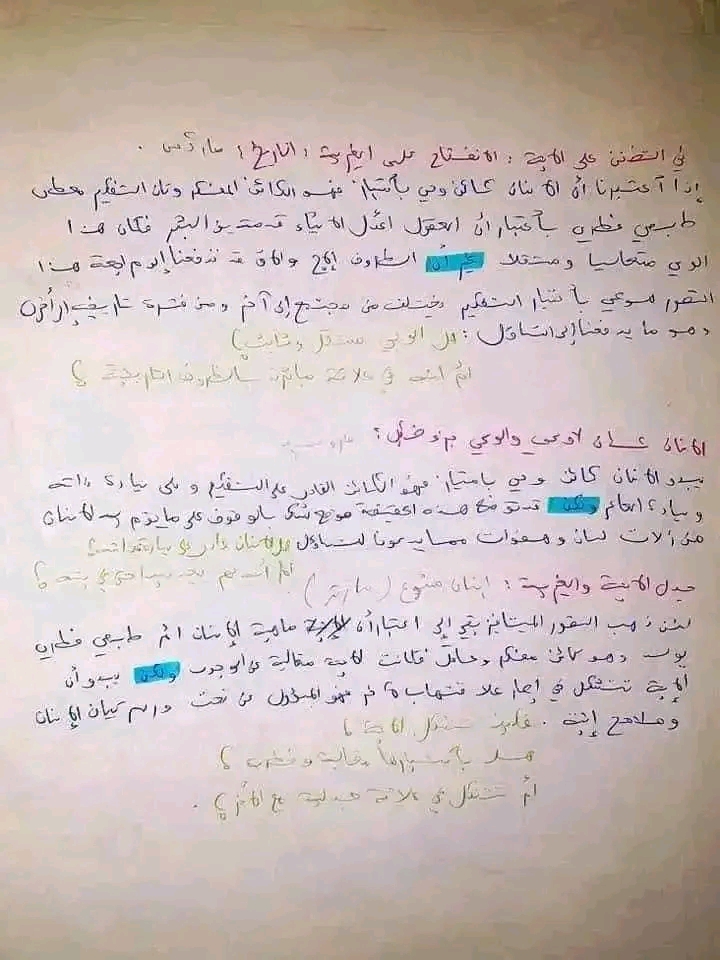 في التضنن على الإنية : الانفتاح على الغيرية : التاريخ : ماركس .
إذا اعتبرنا أن الإنسان كائن وعي بامتياز فهو الكائن المفكر وكان التفكير معطى
طبيعي فطري باعتبار أن العقول أعدل الأشياء قسمة بين البشر فكان هذا
الوعي متعاليا ومستقلا غير أن الظروف إلخ والآن قد تدفعنا إلى مراجعة هذا
التصور موعي باعتبار التفكير يختلف من مجتمع إلى آخر ومن فترة تاريخية إلى أخرى
وهو ما يدفعنا إلى التساؤل : هل الوعي مستقل وثابت؟
أم أنه في علاقة مباشرة بالظروف التاريخية ؟
الإنسان كيان لاوعي والوعي جزء ضئيل :
يبدو الإنسان كائن وعي بامتياز فهو الكائن القادر على التفكير وعلى سيادة ذاته
وسيادة العالم ولكن قد توضع هذه الحقيقة موضع شك بالوقوف على ما يقوم به الإنسان
من زلات لسان وهفوات مما يدعونا للتساؤل هل الإنسان واع بسيادة ذاته؟
أم أنه لم يعد سيدا حتى في بيته ؟
جدل الإنية والغيرية : إنسان متنوع ( سارتر )
لئن ذهب التصور الميتافيزيقي إلى اعتبار أن ماهية الإنسان أمر طبيعي فطري
يولد وهو كائن مفكر وعاقل فكانت الإنية متعالية عن الوجود ولكن يبدو أن
الإنية تتشكل في إطار علاقتها بالآخر فهو المسؤول عن نحت ورسم كيان الإنسان
وملامح إنيته . فكيف تتشكل الإنية ؟
هل باعتبارها متعالية وفطرية ؟
أم تتشكل في علاقة جدلية مع الآخر ؟ .